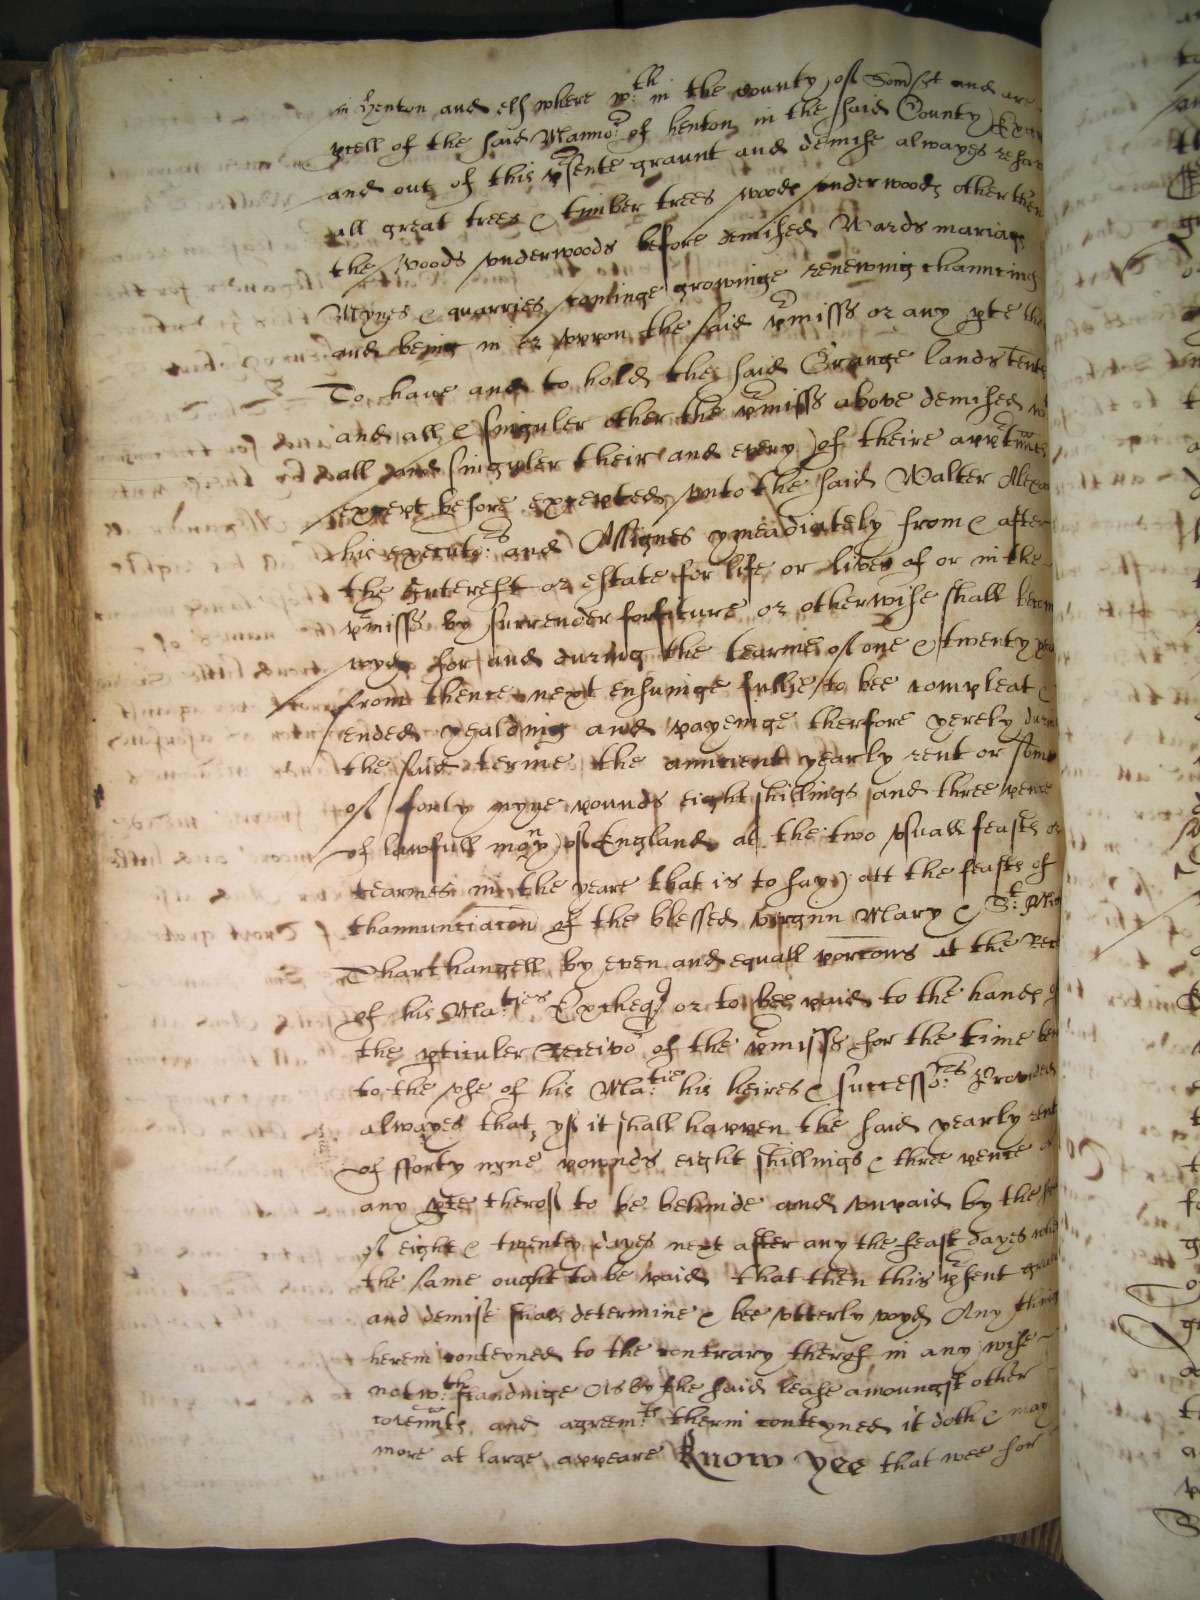 in Henton and els where w:th in the County of Somsᵗ and are
pcell of the said Manno:r of henton in the said County Except
and out of this psente graunt and demise alwayes reser
all great trees & timber trees woods underwoods other then
the woods underwoods before demised Wards mariag
Mynes & quarries cominge growinge renewing chauncing
and being in or uppon the said pmisss or any pte the
To have and to hold the said Grange lands tents
and all & singuler other the pmisss above demised
all and singuler their and every of theire apptnncs
except before excepted unto the said Walter Alexa
his executo:rs and Assignes ymeadiately from & after
the Interest or estate for life or lives of or in the
pmisss by surrender forfiture or otherwise shall becom
voyd for and during the tearme of one & twenty yea
from thence next ensuinge fullie to bee compleat &
ended yealding and payenige therfore yerely durin
the said terme the auncient yearly rent or some
of forty nyne pounds eight shillings and three pence
of lawfull mony of England at the two usuall feasts or
tearmes in the yeare that is to say att the feasts of
thannunciacon of the blessed virginn Mary & St: Mi
Tharkhangell by even and equall porcons at the Rec
of his Ma:ties Excheqr or to bee paid to the hands o
the pticuler Receivor of the pmisss for the time bei
to the use of his Ma:tie his heires & successo:rs Provided
alwayes that yf it shall happen the said yearly rent
of fforty nyne pownds eight shillings & three pence o
any pte therof to be behinde and unpaid by the
of eight & twenty dayes next after any the feast dayes
the same ought to be paid that then this psent graun
and demise shall determine & bee utterly voyd Any thing
herein conteyned to the contrary therof in any wise
notw:th standinge As by the said lease amoungst other
covennts and agreem:ts therin conteyned it doth & may
more at large appeare Know yee that wee for